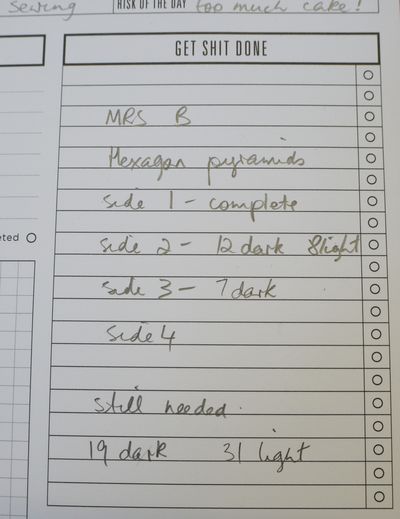 Sewing RISK OF THE DAY too much cake!
GET SHIT DONE
MRS B
Hexagon pyramids
side 1 - complete
eted
side 2 - 12 dark 8 light
side 3 - 7 dark
side 4
still needed.
19 dark 31 light